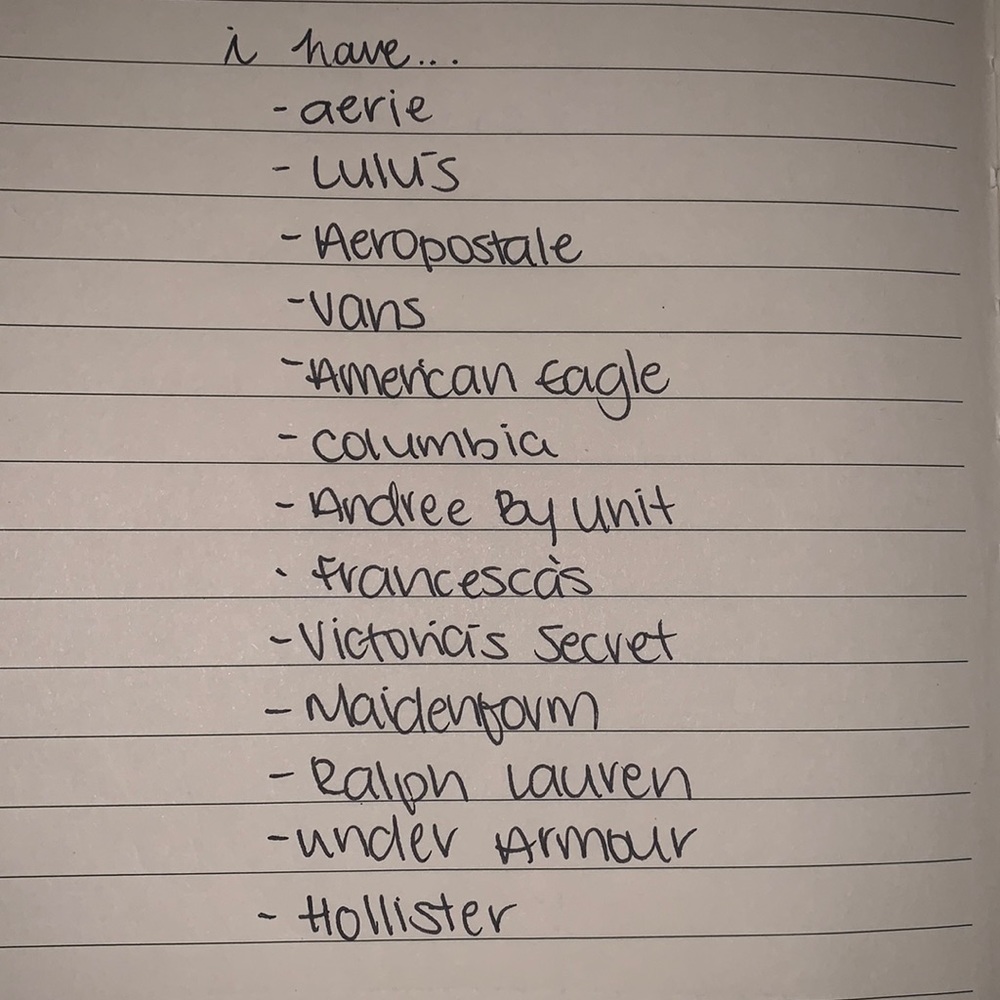 i have...
- aerie
- Lulu's
- Aeropostale
- Vans
- American Eagle
- Columbia
- Andree By Unit
- Francesca's
- Victoria's Secret
- Maidenform
- Ralph Lauren
- under Armour
- Hollister